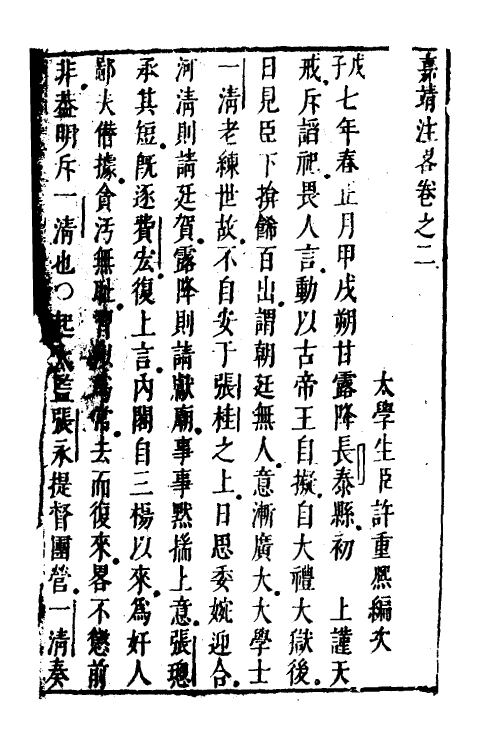 嘉靖注畧卷之二
太學生臣許重熈編次
戊子七年春正月甲戌朔甘露降長泰縣初　上謹天
戒斥謟祀畏人言動以古帝王自擬自大禮大獄後
日見臣下揜餙百出謂朝廷無人意漸廣大大學士
一清老練世故不自安于張桂之上日思委婉迎合
河清則請廷賀露降則請獻廟事事黙揣上意張璁
承其短旣逐費宏復上言內閣自三楊以來爲奸人
鄙夫僣據貪汚無耻習爲常去而復來畧不懲前
非葢明斥一清也〇起太監張永提督團營一清奏